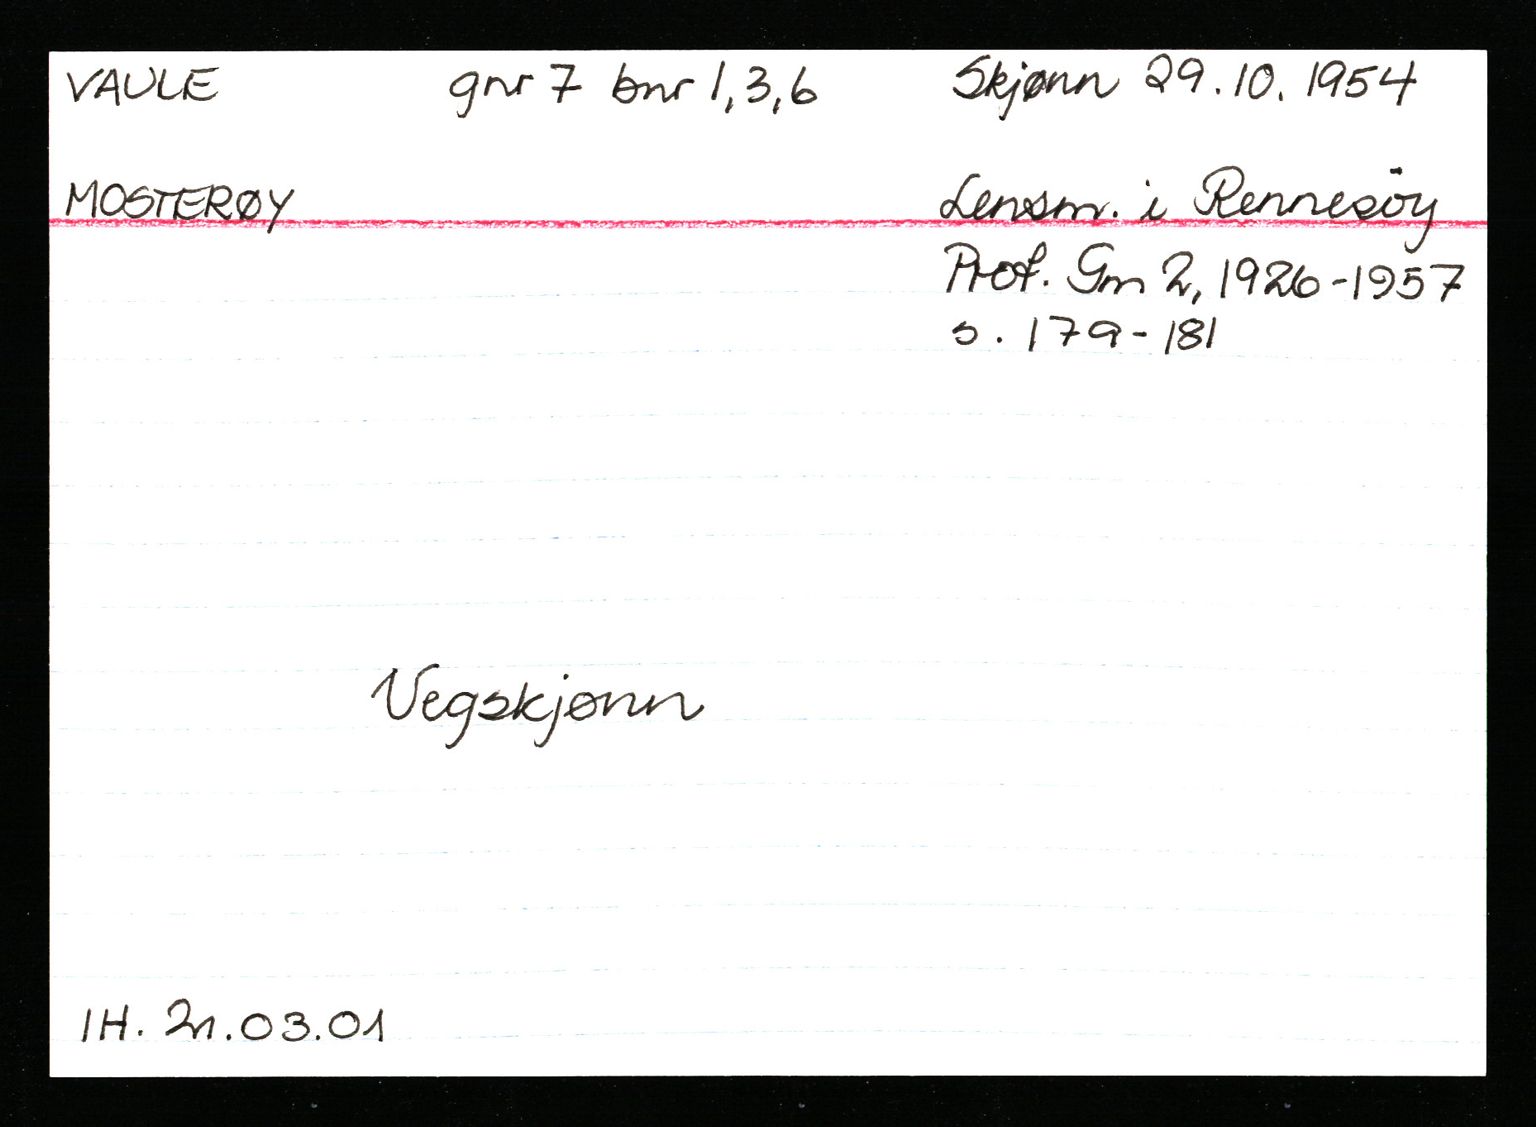 VAULE gnr 7 bnr 1,3,6 Skjønn 29.10.1954
MOSTERØY Lensm. i Rennesöy
Prot. Gm 2, 1926-1957
s. 179-181
Vegskjønn
IH. 21.03.01